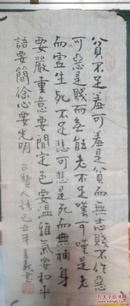 貧不足羞可羞是貧而無志賤不足惡
可惡是賤而無能老不足嘆可嘆是老
而虛生死不足悲可悲是死而無補身
要嚴重意要閒定色要溫雅氣要和平
語要簡徐心要光明